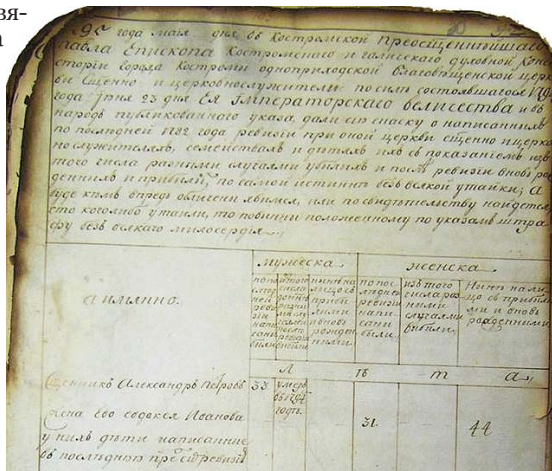 вя-
а
1795 года маия дня въ Костромской Преосщеннѣйшаго
Павла Епископа Костромскаго и галискаго духовной Конси
сторіи города Костромы одноприходской благовѣщенской церк
ви сщенно и церковнослужители по силѣ состоявшагося 1794
года июня 23 дня Ея Императорскаго величества и въ
народъ публикованнаго указа дали сію скаску о написанныхъ
по послѣдней 1782 года ревизіи при оной церкви сщенно и церко
служителяхъ, семействахъ и дѣтяхъ ихъ съ показаніемъ изъ
того числа разными случаями убылыхъ и послѣ ревизіи вновь ро
жденныхъ и прибылыхъ, по самой истиннѣ безъ всякой утайки; А
буде кѣмъ впредь обличены явимся, или по свидѣтельству найдется
что кого либо утаили, то повинны положенному по указамъ штра
фу безъ всякаго милосердія
мужеска женска
а имянно.
по послѣдней ревизіи написаны были
изъ того числа разными случаями
нынѣ на лицо съ прибылыми и вновь рожденными
по послѣдней ревизіи написаны были
изъ того числа разными случаями выбыли
Нынѣ на лицо съ прибылыми и вновь рожденными
Л ѣ т а
Сщенникъ Александръ Петровъ 33 умеръ въ 1794 годѣ
жена Его Иванова 31 44
у нихъ дѣти написанные
въ послѣднею пред ревизію